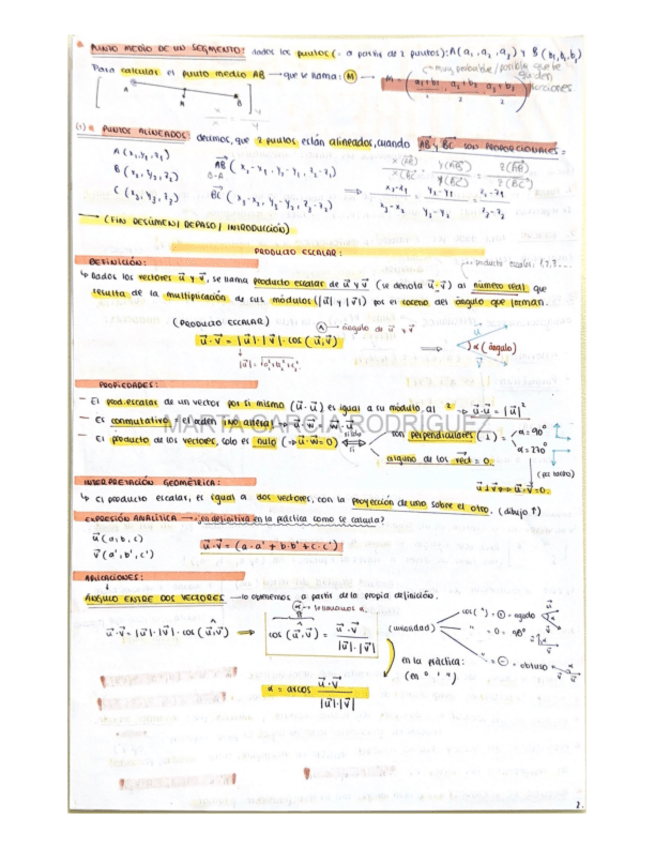 PUNTO MEDIO DE UN SEGMENTO: dados los puntos (= a partir de 2 puntos): A(a₁, a₂, a₃) y B(b₁, b₂, b₃)
Para calcular el punto medio AB → que se llama: M → M = (a₁+b₁/2, a₂+b₂/2, a₃+b₃/2)
muy probable/posible que te
A M B
(1) PUNTOS ALINEADOS: decimos, que 2 puntos están alineados, cuando AB y BC SON PROPORCIONALES =
A (x₁, y₁, z₁)
B (x₂, y₂, z₂)
C (x₃, y₃, z₃)
AB (x₂-x₁, y₂-y₁, z₂-z₁)
B-A
BC (x₃-x₂, y₃-y₂, z₃-z₂)
x(AB)/x(BC) = y(AB)/y(BC) = z(AB)/z(BC)
⇒ x₂-x₁/x₃-x₂ = y₂-y₁/y₃-y₂ = z₂-z₁/z₃-z₂
→ (FIN RESUMEN/ REPASO/ INTRODUCCIÓN)
PRODUCTO ESCALAR:
DEFINICIÓN:
producto escalar: 1, 2, 3...
↳ Dados los vectores u⃗ y v⃗, se llama producto escalar de u⃗ y v⃗ (se denota u⃗·v⃗) al número real que
resulta de la multiplicación de sus módulos (|u⃗| y |v⃗|) por el coseno del ángulo que forman.
(PRODUCTO ESCALAR)
∧ → ángulo de u⃗ y v⃗
u⃗·v⃗ = |u⃗|·|v⃗|·cos(u⃗,v⃗) ⇒ α (ángulo)
u⃗
v⃗
PROPIEDADES:
- El prod. escalar de un vector por si mismo (u⃗·u⃗) es igual a su módulo al 2 → u⃗·u⃗ = |u⃗|²
- Es conmutativo: el orden ¡no altera! → u⃗·w⃗ = w⃗·u⃗
- El producto de los vectores, solo es nulo (→ u⃗·w⃗ = 0) si son perpendiculares (⊥) = α = 90°
α = 270°
alguno de los vect = 0.
u⃗ ⊥ v⃗ ⇔ u⃗·v⃗ = 0.
MARTA GARCIA RODRIGUEZ
INTERPRETACIÓN GEOMÉTRICA:
↳ El producto escalar, es igual a dos vectores, con la proyección de uno sobre el otro. (dibujo ↑)
EXPRESIÓN ANALÍTICA → ¿en definitiva en la práctica como se calcula?
u⃗ (a, b, c)
v⃗ (a', b', c')
u⃗·v⃗ = (a·a' + b·b' + c·c')
APLICACIONES:
ÁNGULO ENTRE DOS VECTORES → lo obtenemos a partir de la propia definición.
u⃗·v⃗ = |u⃗|·|v⃗|·cos(u⃗,v⃗) ⇒ cos(u⃗,v⃗) = u⃗·v⃗/|u⃗|·|v⃗|
cos(") = + = agudo
" = 0 = 90°
" = - = obtuso
en la práctica:
(en ° ' ")
α = arcos u⃗·v⃗/|u⃗|·|v⃗|
2.